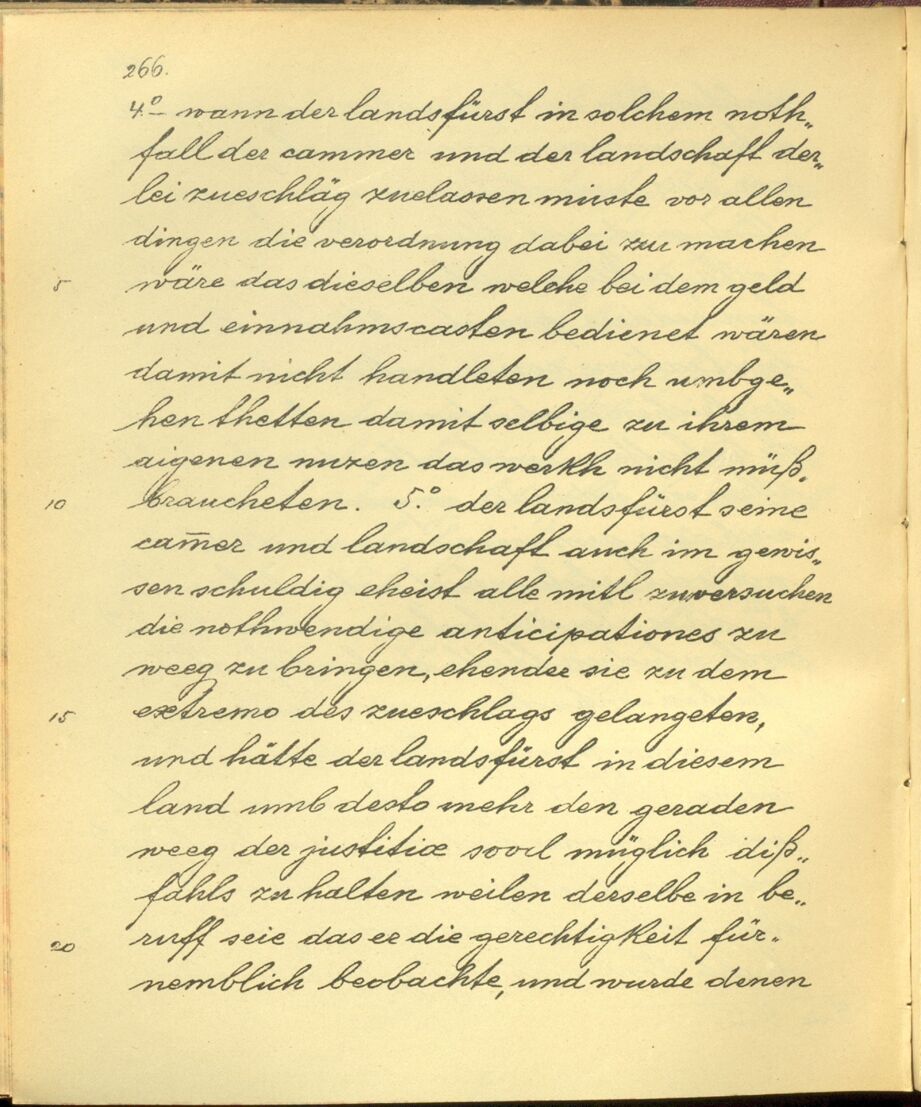 266.
4.º – wann der landsfürst in solchem noth„
fall der cammer und der landschaft der„
lei zueschläg zuelassen müste vor allen
dingen die verordnung dabei zu machen
5 wäre das dieselben welche bei dem geld
und einnahmscasten bedienet wären
damit nicht handleten noch umbge„
hen thetten damit selbige zu ihrem
aigenen nuzen das werkh nicht müß„
10 braucheten. 5.º der landsfürst seine
cam̅er und landschaft auch im gewis„
sen schuldig eheist alle mitl zuversuchen
die nothwendige anticipationes zu
weeg zu bringen, ehender sie zu dem
15 extremo des zueschlags gelangeten,
und hätte der landsfürst in diesem
land umb desto mehr den geraden
weeg der justitiæ sovil müglich diß„
fahls zu halten weilen derselbe in be„
20 ruff seie das er die gerechtigkeit für„
nemblich beobachte, und wurde denen